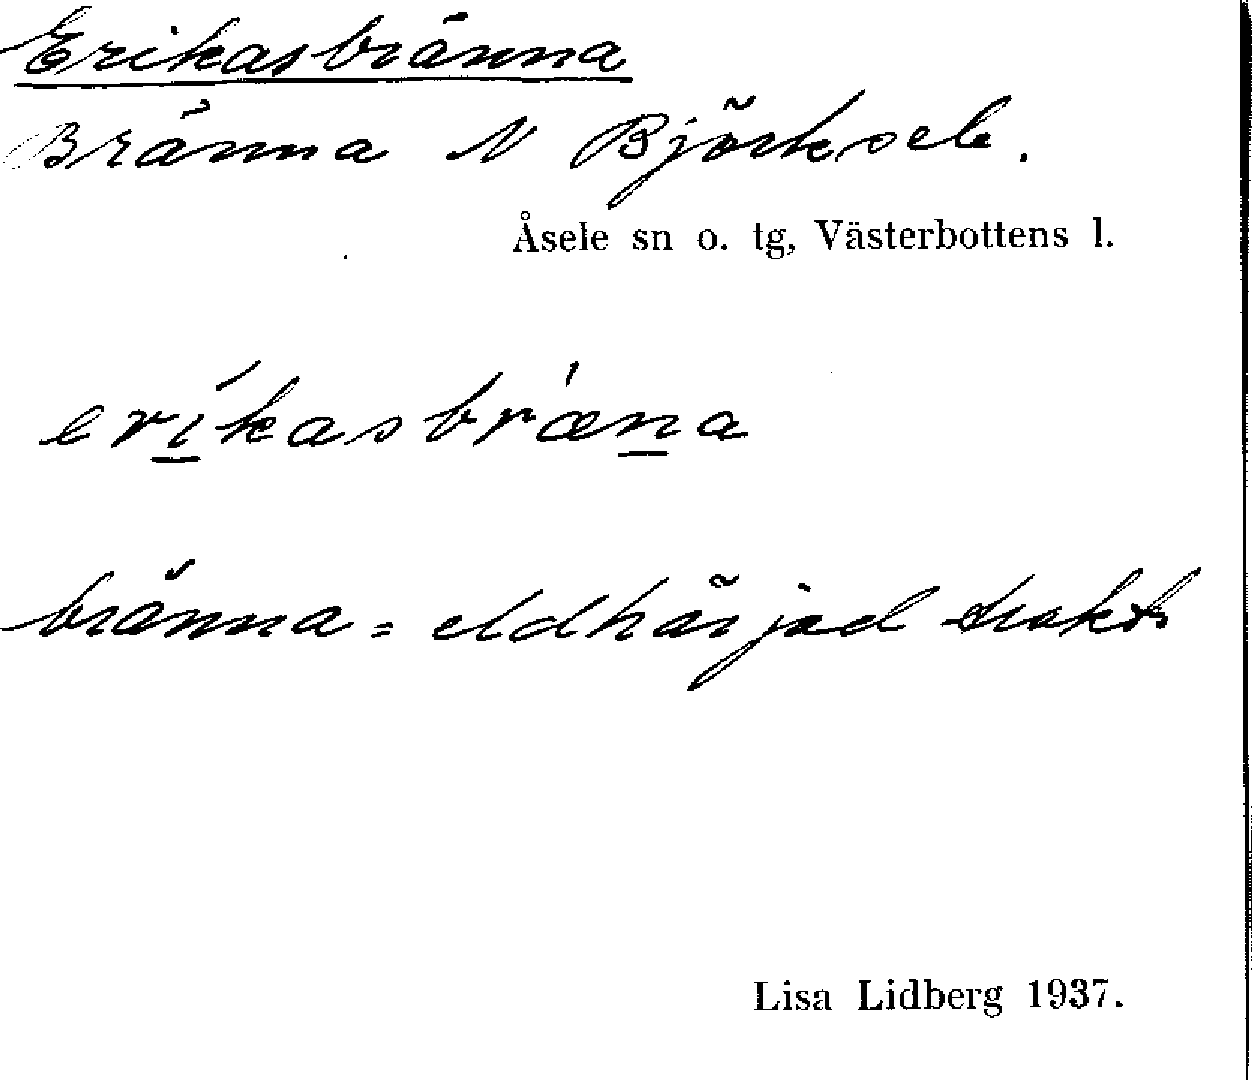 Erikasbränna
Bränna N Björksele.
Åsele sn o. tg, Västerbottens l.
eríkasbræ̀na
bränna = eldhärjad trakt
Lisa Lidberg 1937.